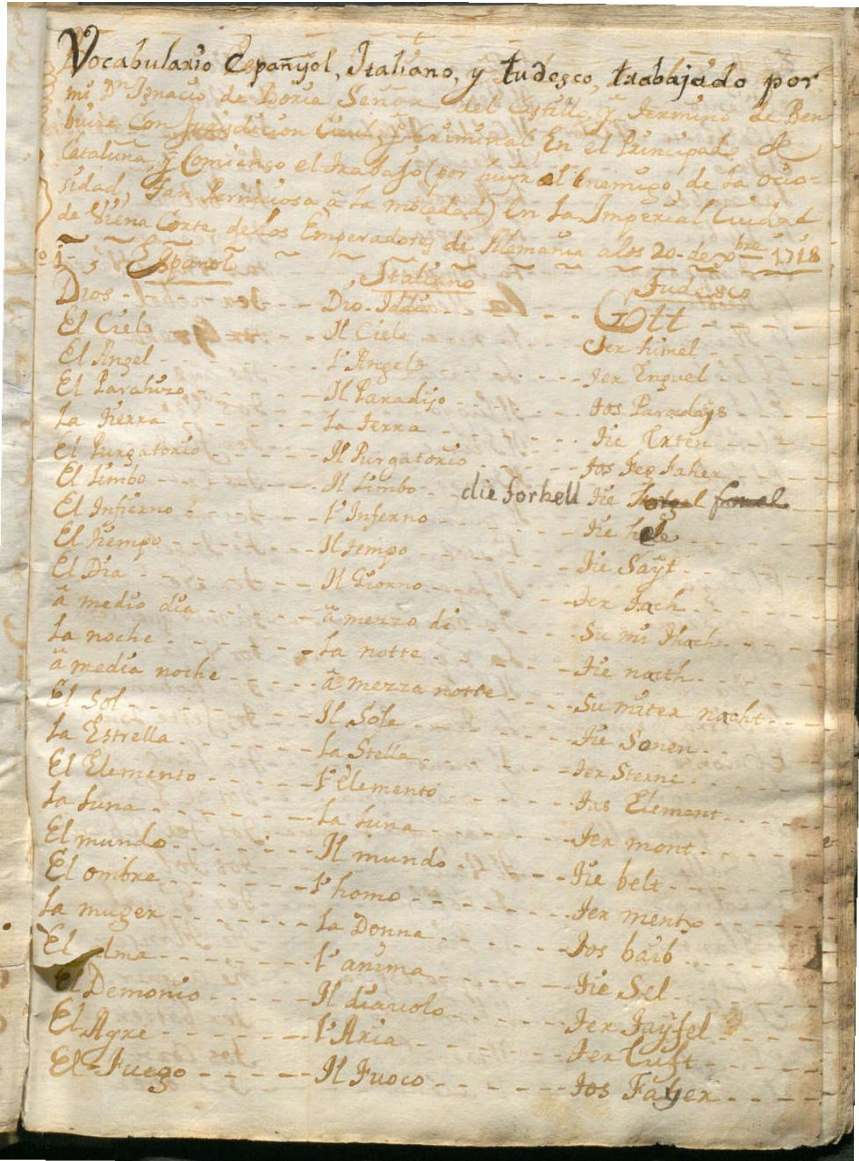 Vocabulario Español, Italiano, y tudesco, trabajado por
mi Dn Ignacio de Doria Señor del Castillo, y termino de Ben-
buire con Jurisdicion Civil, y Criminal, En el Principado de
Cataluña, y Comienso el trabajo (por huyr al Enemigo, de la ocio-
sidad, tan perniciosa â la mocedad) En la Imperial Ciudad
de Viena Corte de los Emperadores de Alemaña a los 20 de xbre 1718
Español Italiano Tudesco
Dios Dio Gott
El Cielo Il Cielo der himel
El Angel l'Angelo der Enguel
El Parahizo Il Paradiso dos Paradays
La tierra La terra die Erten
El Purgatorio Il Purgatorio dos feg faher
El Limbo Il Limbo die forhell die
El Infierno l'Inferno die hele
El tiempo Il tempo die Sayt
El Dia Il Giorno der Dach
â medio dia â mezzo di Su mi thach
La noche La notte die nacth
â media noche â mezza notte Su miter nacht
El Sol Il Sole die Sonen
La Estrella La Stella der Sterne
El Elemento l'Elemento das Element
La Luna La Luna der mont
El mundo Il mundo die belt
El ombre l'homo der mentx
La muger La Donna dos baib
El alma l'anima die Sel
El Demonio Il diavolo der Tayfel
El Ayre l'Aria der Luft
El Fuego Il Fuoco dos Fayer